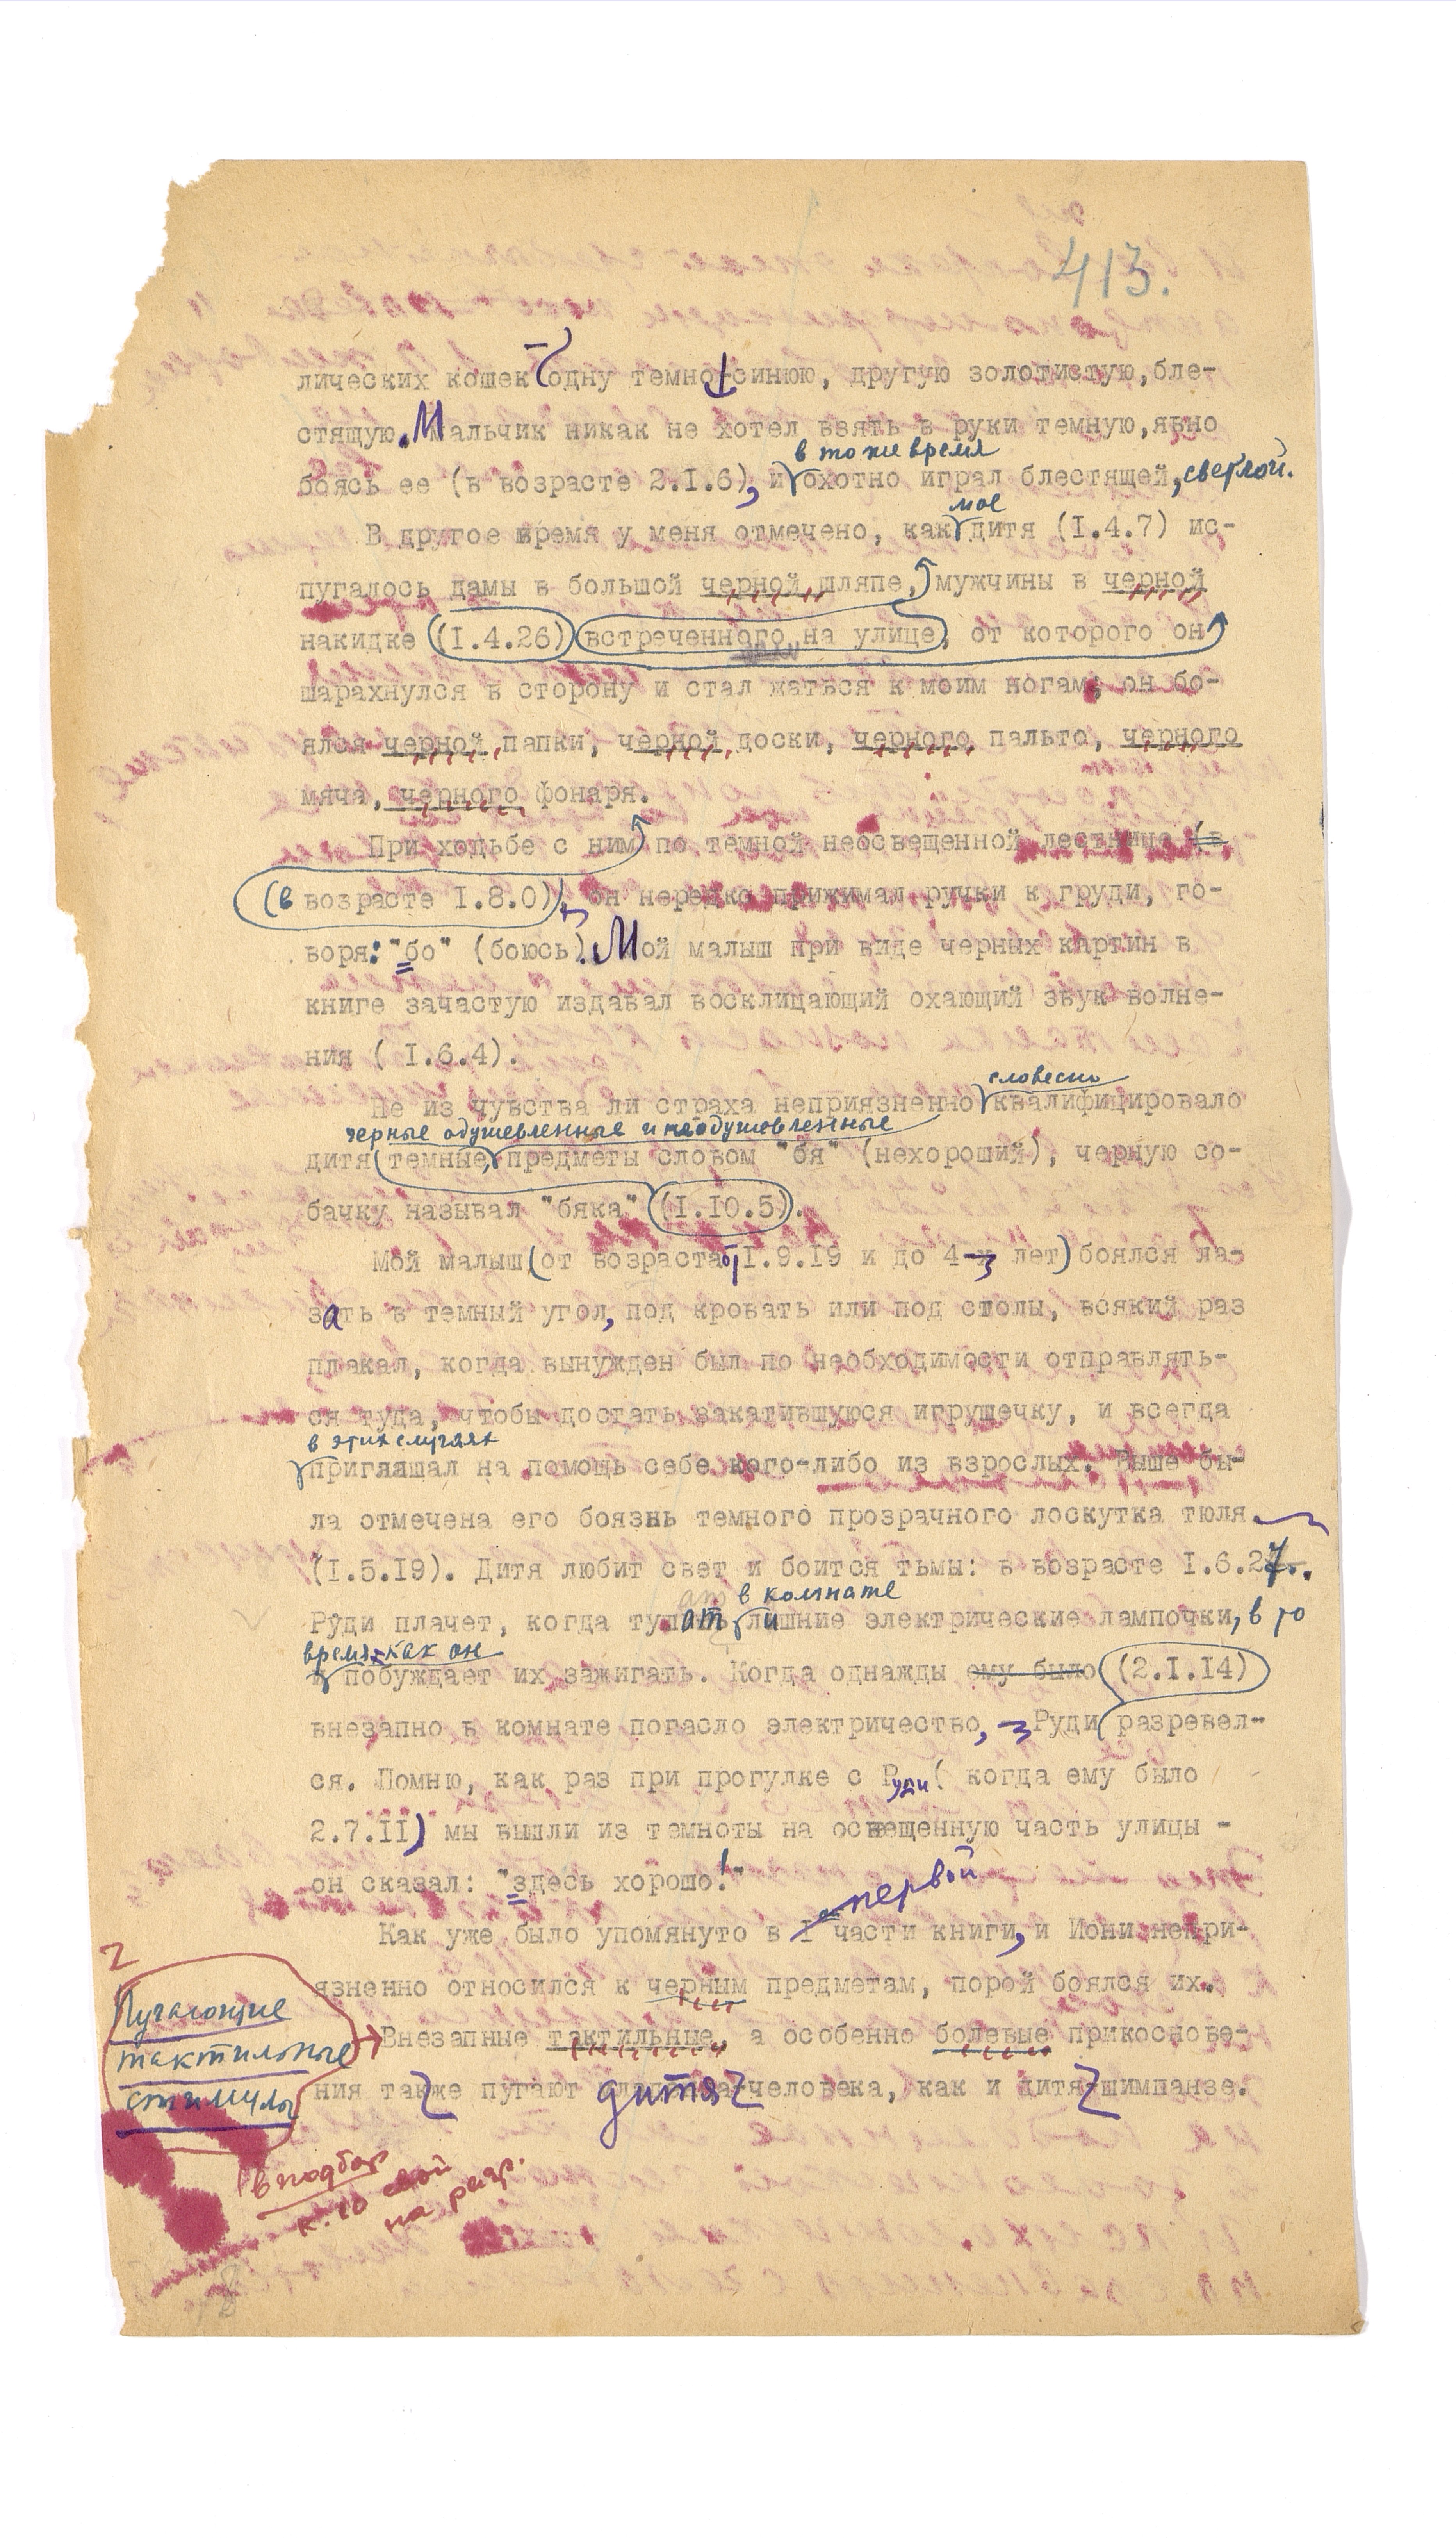 413.
лических кошек — одну темно-синюю, другую золотистую, бле-
стящую. Мальчик никак не хотел взять в руки темную, явно
в то же время
боясь ее (в возрасте 2.I.6), и охотно играл блестящей, светлой.
мое
В другое время у меня отмечено, как дитя (I.4.7) ис-
пугалось дамы в большой черной шляпе, мужчины в черной
накидке (I.4.26) встреченного на улице, от которого он
шарахнулся в сторону и стал жаться к моим ногам; он бо-
ялся черной папки, черной доски, черного пальто, черного
мяча, черного фонаря.
При ходьбе с ним по темной неосвещенной лестнице (в
(в возрасте I.8.0), он нередко прижимал ручки к груди, го-
воря: "бо" (боюсь). Мой малыш при виде черных картин в
книге зачастую издавал восклицающий охающий звук волне-
ния ( I.6.4).
словесно
Не из чувства ли страха неприязненно квалифицировало
черные одушевленные и неодушевленные
дитя темные предметы словом "бя" (нехороший), черную со-
бачку называл "бяка" (I.10.5).
Мой малыш (от возраста от I.9.19 и до 4-х лет) боялся ла-
зать в темный угол, под кровать или под столы, всякий раз
плакал, когда вынужден был по необходимости отправлять-
ся туда, чтобы достать закатившуюся игрушечку, и всегда
в этих случаях
приглашал на помощь себе кого-либо из взрослых. Выше бы-
ла отмечена его боязнь темного прозрачного лоскутка тюля
(I.5.19). Дитя любит свет и боится тьмы: в возрасте I.6.27.
в комнате
Руди плачет, когда тушат лишние электрические лампочки, в то
время как он
и побуждает их зажигать. Когда однажды ему было (2.I.14)
внезапно в комнате погасло электричество, Руди разревел-
ся. Помню, как раз при прогулке с Руди ( когда ему было
2.7.II) мы вышли из темноты на освещенную часть улицы -
он сказал: "здесь хорошо!"
первой
Как уже было упомянуто в I части книги, и Иони непри-
язненно относился к черным предметам, порой боялся их.
Пугающие
тактильные
стимулы
Внезапные тактильные, а особенно болевые прикоснове-
ния также пугают дитя человека, как и дитя-шимпанзе.
в подбор